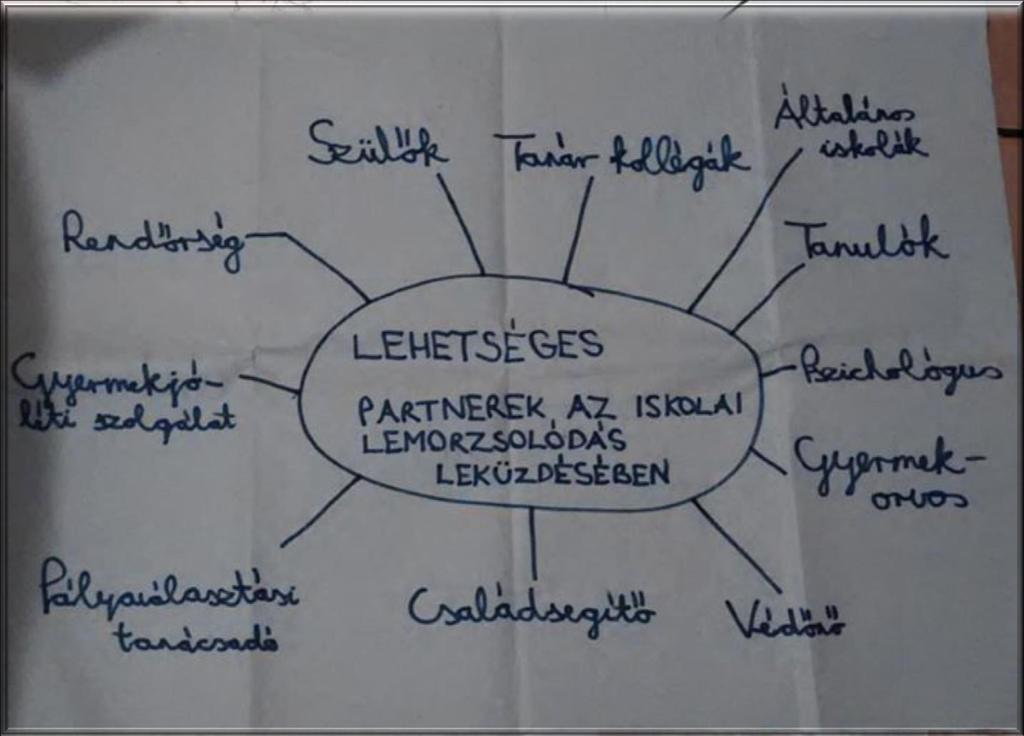 Szülők
Tanár kollégák
Általános
iskolák
Rendőrség
Tanulók
LEHETSÉGES
PARTNEREK AZ ISKOLAI
LEMORZSOLÓDÁS
LEKÜZDÉSÉBEN
Gyermekjó-
léti szolgálat
Pszichológus
Gyermek-
orvos
Pályaválasztási
tanácsadó
Családsegítő
Védőnő